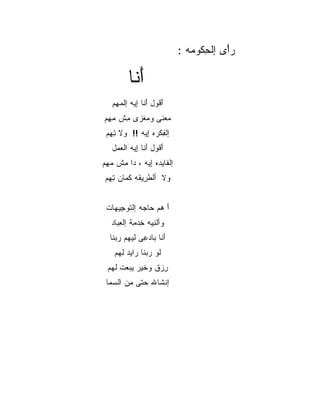 رأى إلحكومه :
أنا
أقول أنا إيه إلمهم
معنى ومغزى مش مهم
إلفكره إيه !! ولا تهم
أقول أنا إيه العمل
إلفايده إيه ، دا مش مهم
ولا ألطريقه كمان تهم
أ هم حاجه إلتوجيهات
وألنيه خدمة إلعباد
أنا بادعى ليهم ربنا
لو ربنا رايد لهم
رزق وخير يبعت لهم
إنشالله حتى من السما